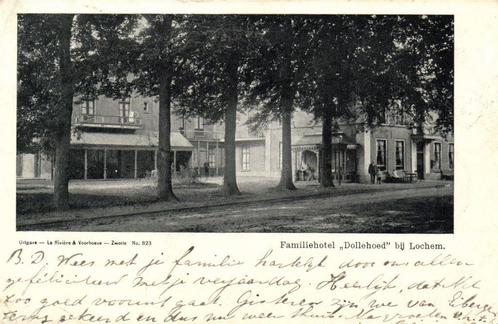 Uitgave — La Rivière & Voorhoeve — Zwolle No. 823
Familiehotel „Dollehoed" bij Lochem.
B.D. Wees met je familie hartelijk door ons allen
gefeliciteerd met je verjaardag. Heerlijk, dat het
zoo goed vooruit gaat. Gisteren zijn we van Eibergen
en dus nu weer thuis. Na groeten